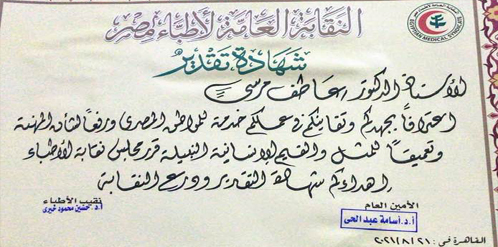 النقابة العامة لأطباء مصر
EGYPTIAN MEDICAL SYNDICATE
شهادة تقدير
الأستاذ الدكتور / عاطف مرسى
اعترافاً بجهدكم وتفانيكم في عملكم خدمة للمواطن المصرى ورفعاً لشأن المهنة
وتعميقاً للمثل والقيم الإنسانية النبيلة قرر مجلس نقابة الأطباء
إهداءكم شهادة التقدير ودرع النقابة
الأمين العام
أ.د. أسامة عبد الحى
نقيب الأطباء
أ.د. حسين محمود خيرى
القاهرة فى : ٢٠٢١/٨/٢١